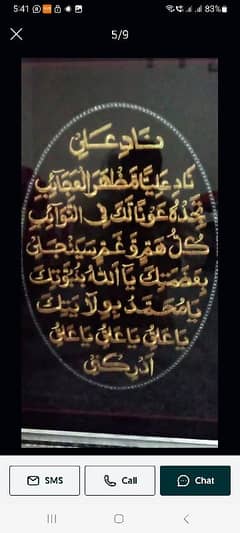 5:41
83%
5/9
ناد علی
ناد علیا مظهر العجائب
تجده عونا لك في النوائب
كل هم و غم سينجلي
بعظمتك يا الله بنبوتك
يا محمد بولايتك
يا علي يا علي يا علي
ادركني
SMS
Call
Chat